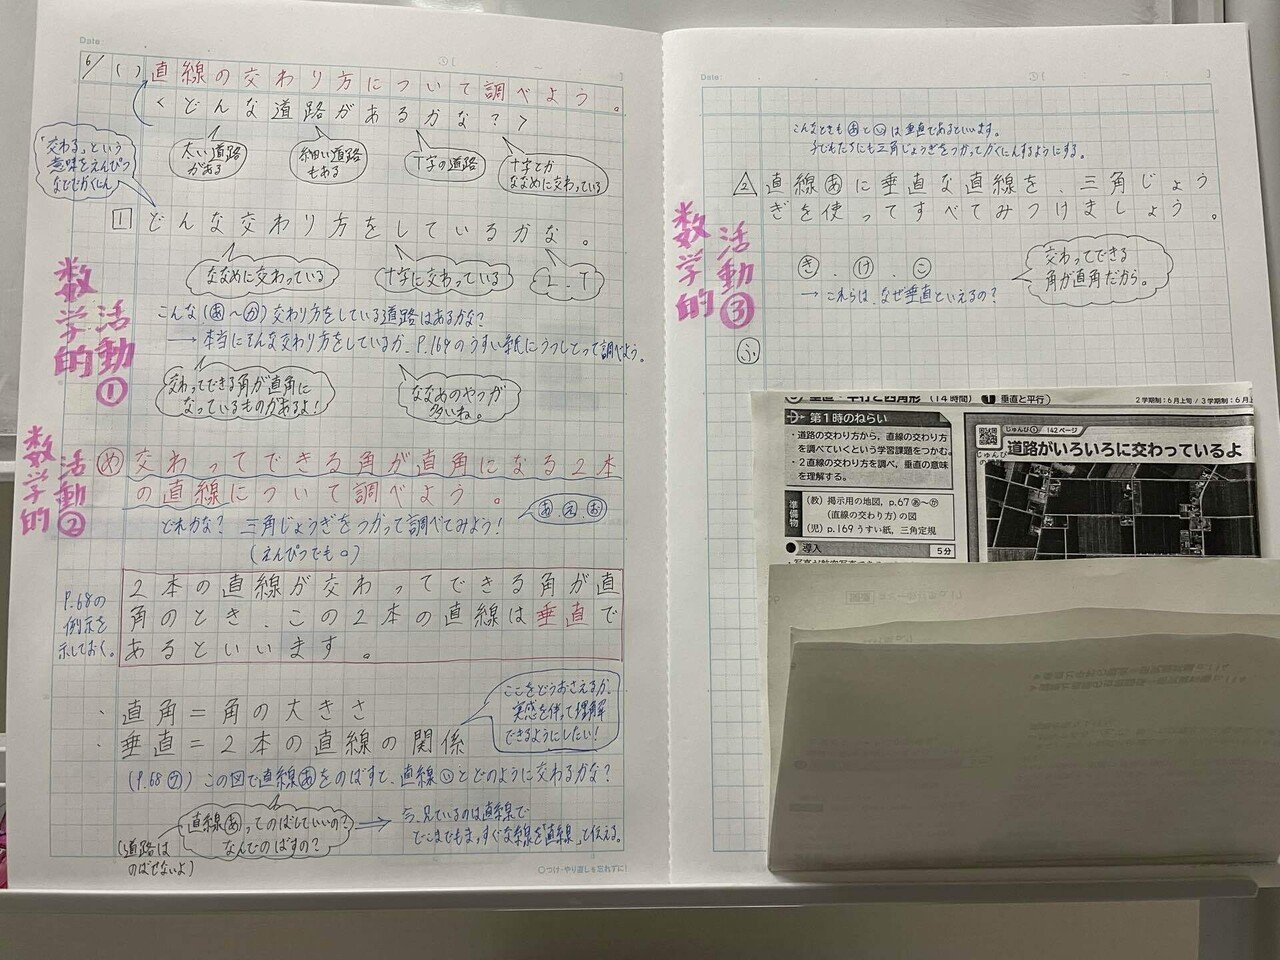 Date
6/
( ) 直線の交わり方について調べよう。
<どんな道路があるかな?>
「交わる」という
意味をえんぴつ
などでかくにん
太い道路
がある
細い道路
もある
T字の道路
十字とか
ななめに交わっている
1 どんな交わり方をしているかな。
ななめに交わっている
十字に交わっている
⊥、T
数学的
活動①
こんな(あ〜か)交わり方をしている道路はあるかな?
→本当にそんな交わり方をしているか、P.169のうすい紙にうつしとって調べよう。
交わってできる角が直角に
なっているものがあるよ!
ななめのやつが
多いね。
数学的
活動②
め 交わってできる角が直角になる2本
の直線について調べよう。
どれかな? 三角じょうぎをつかって調べてみよう!
(えんぴつでも。)
あ.え.お
P.68の
例示を
示しておく。
2本の直線が交わってできる角が直
角のとき、この2本の直線は垂直で
あるといいます。
・直角=角の大きさ
・垂直=2本の直線の関係
ここをどうおさえるか、
実感を伴って理解
できるようにしたい!
(P.68 う) この図で直線あをのばすと、直線いとどのように交わるかな?
直線あってのばしていいの?
なんでのばすの?
(道路は
のばせないよ)
今、見ているのは直線で
どこまでもまっすぐな線を「直線」と伝える。
○つけ・やり直しを忘れずに!
Date:
こんなときもあといは垂直であるといいます。
子どもたちにも三角じょうぎをつかってかくにんするようにする。
2 直線あに垂直な直線を、三角じょう
ぎを使ってすべてみつけましょう。
数学的
活動③
き、け、こ
→これらは、なぜ垂直といえるの?
交わってできる
角が直角だから。
ふ
垂直・平行と四角形 (14時間) ❶ 垂直と平行)
2学期制:6月上旬/3学期制:6月
第1時のねらい
・道路の交わり方から,直線の交わり方
を調べていくという学習課題をつかむ。
・2直線の交わり方を調べ,垂直の意味
を理解する。
準備物
(教) 掲示用の地図,p.67 あ〜か
(直線の交わり方)の図
(児) p.169 うすい紙,三角定規
● 導入
5分
じゅんび① 142ページ
道路がいろいろに交わっているよ